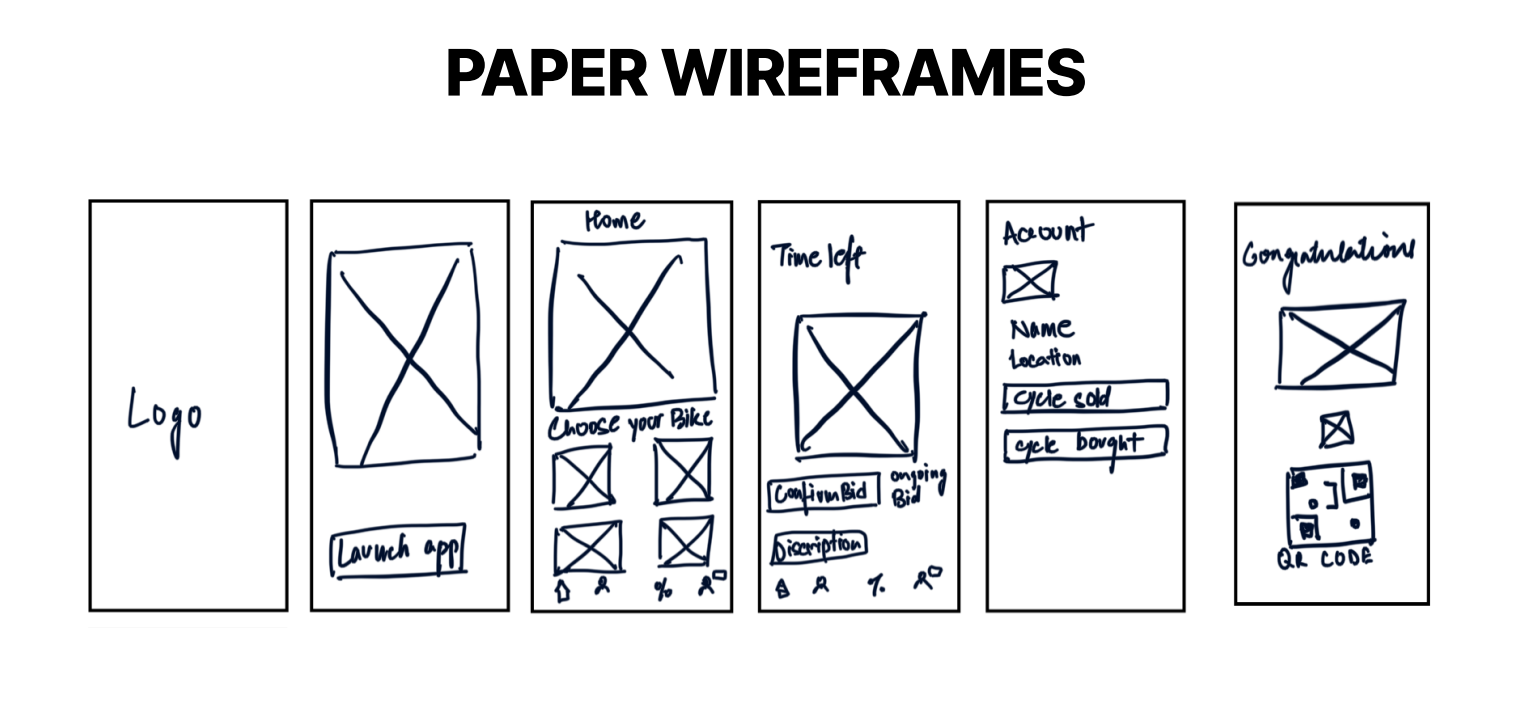 PAPER WIREFRAMES
Logo
Launch app
Home
Choose your Bike
%
Time left
Confirm Bid
ongoing
Bid
Discription
%
Account
Name
Location
Cycle sold
cycle bought
Congratulations
QR CODE